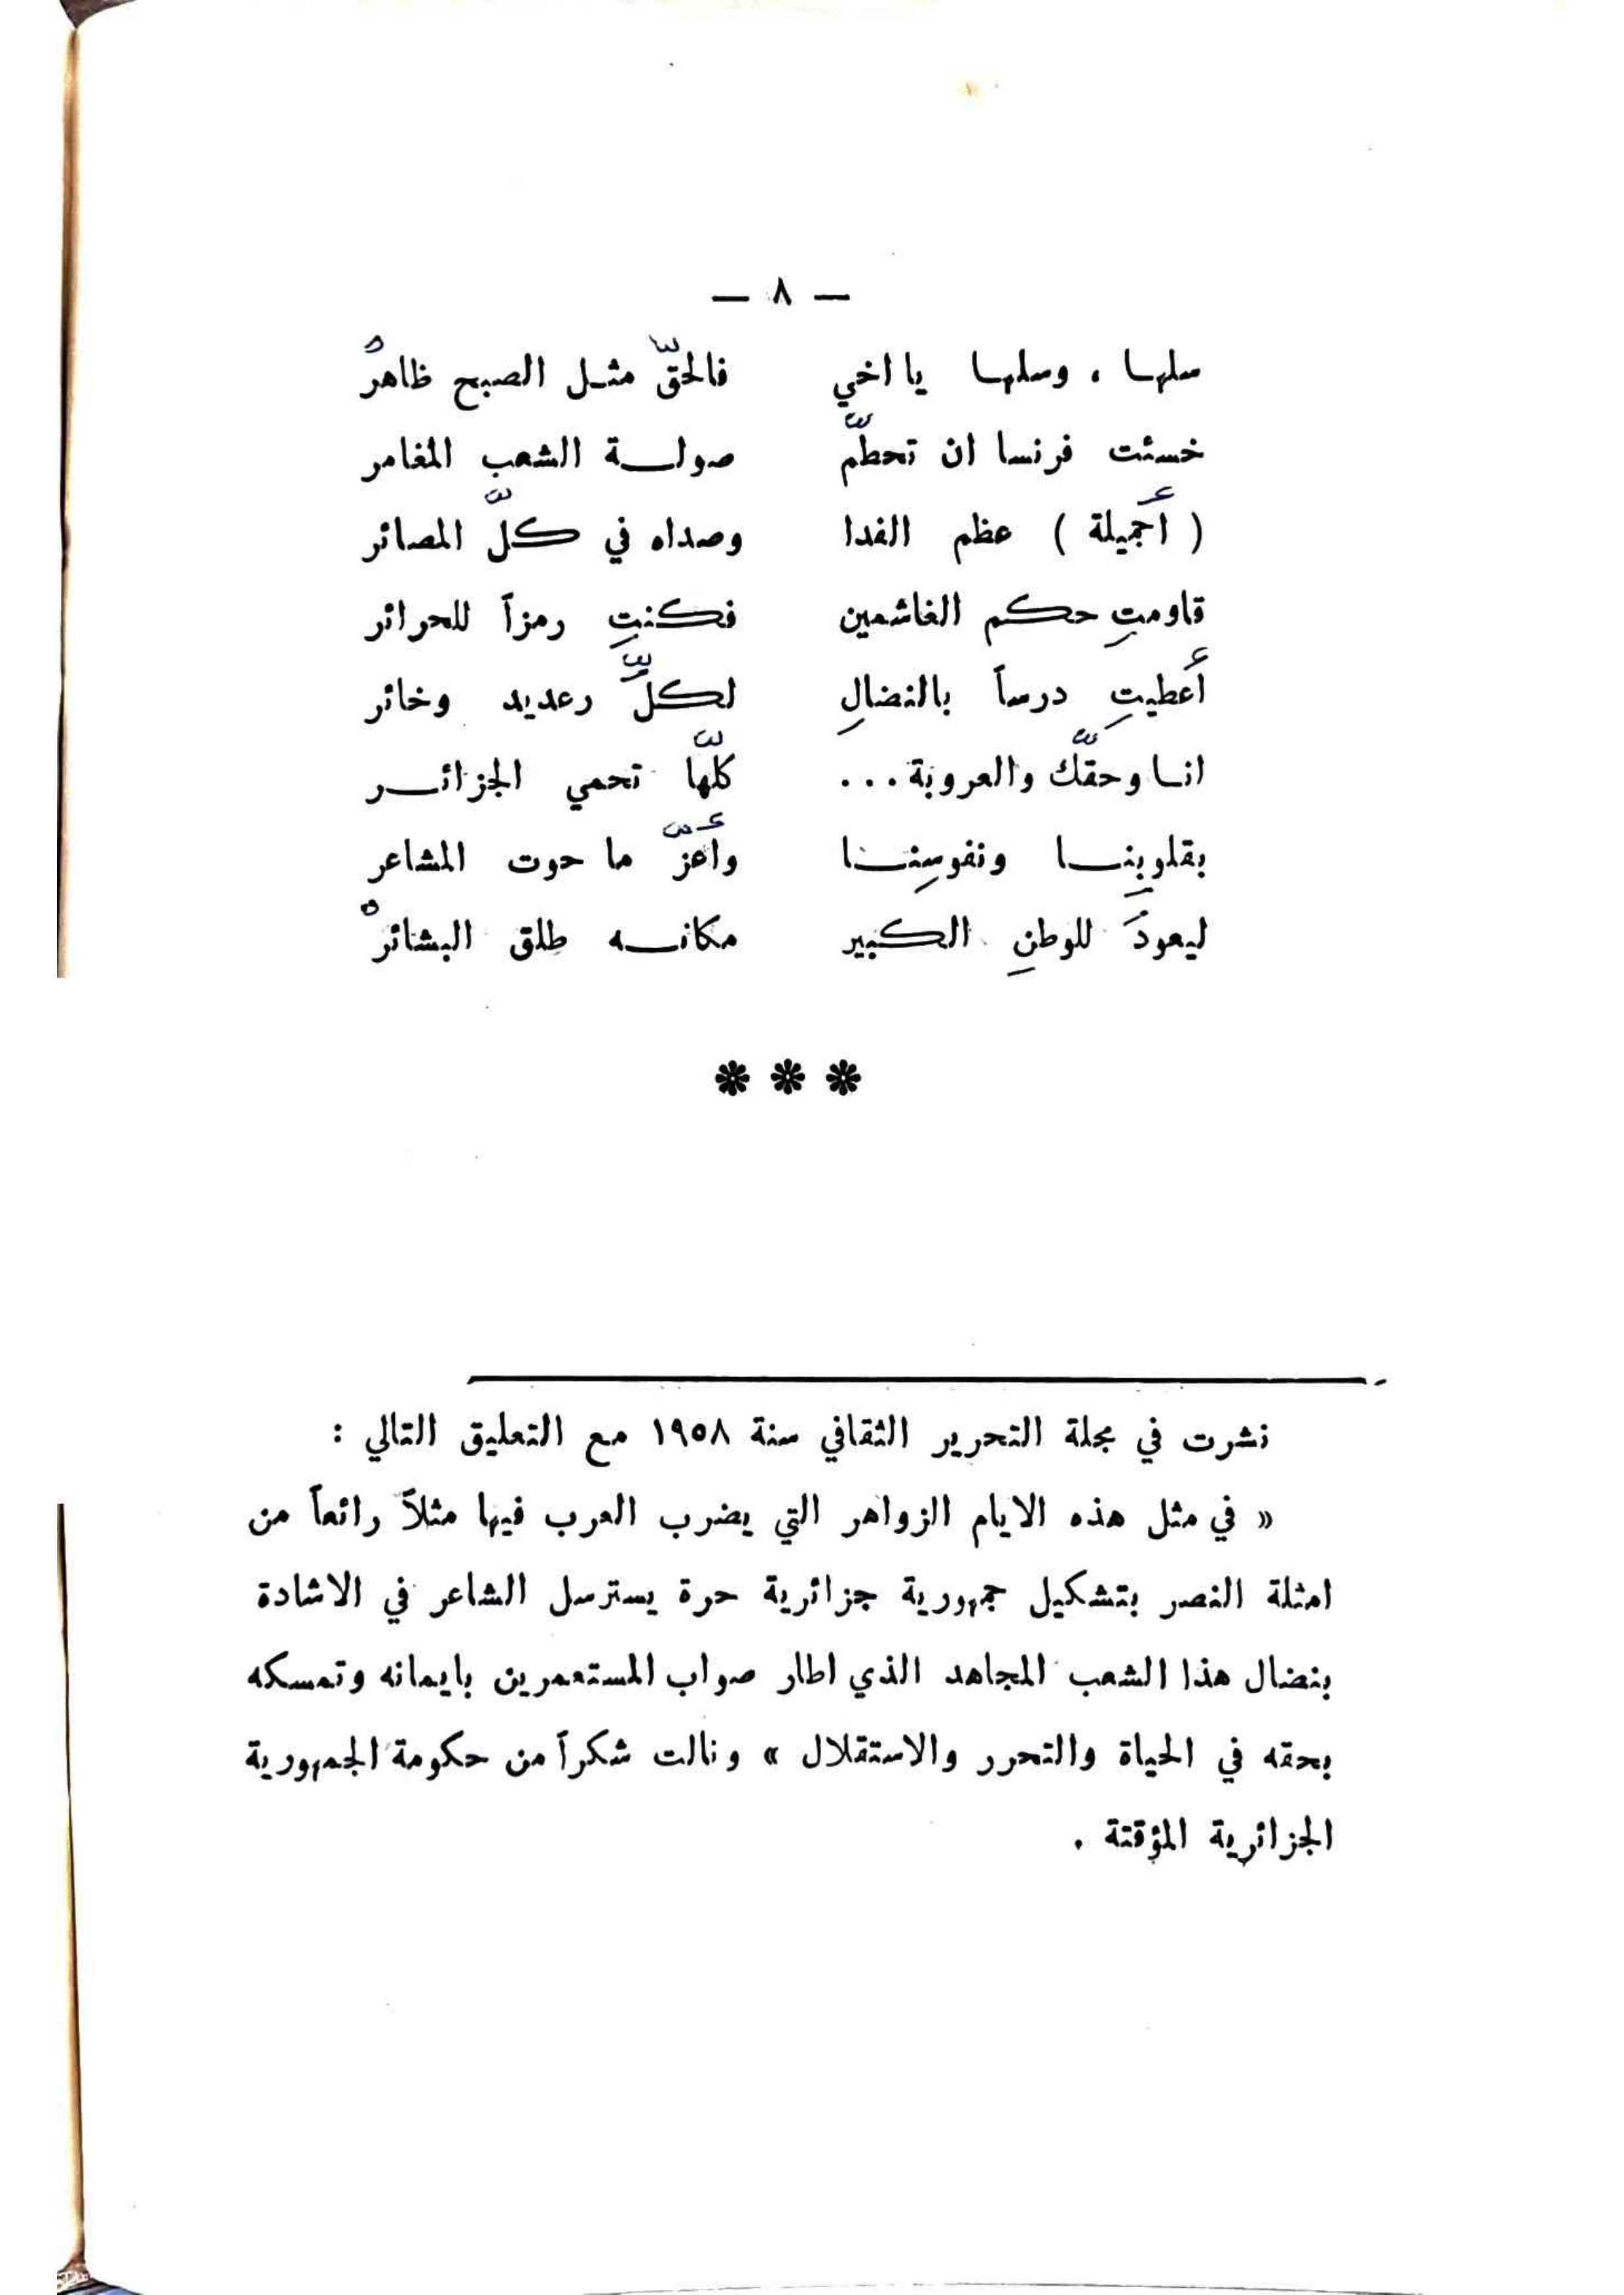 — ٨ —
سلها ، وسلها يا اخي فالحقّ مثل الصبح ظاهرْ
خسئت فرنسا ان تحطّم صولة الشعب المغامر
( أجميلة ) عظم الفدا وصداه في كلّ المصائر
قاومتِ حكم الغاشمين فكنتِ رمزاً للحرائر
أعطيتِ درساً بالنضالِ لكلِّ رعديد وخائر
انا وحقّك والعروبة ... كلّها تحمي الجزائر
بقلوبِنا ونفوسِنا وأعزّ ما حوت المشاعر
ليعودَ للوطنِ الكبير مكانه طلق البشائرْ
* * *
نشرت في مجلة التحرير الثقافي سنة ١٩٥٨ مع التعليق التالي :
« في مثل هذه الايام الزواهر التي يضرب العرب فيها مثلاً رائعاً من
امثلة النصر بتشكيل جمهورية جزائرية حرة يسترسل الشاعر في الاشادة
بنضال هذا الشعب المجاهد الذي اطار صواب المستعمرين بايمانه وتمسكه
بحقه في الحياة والتحرر والاستقلال » ونالت شكراً من حكومة الجمهورية
الجزائرية المؤقتة .